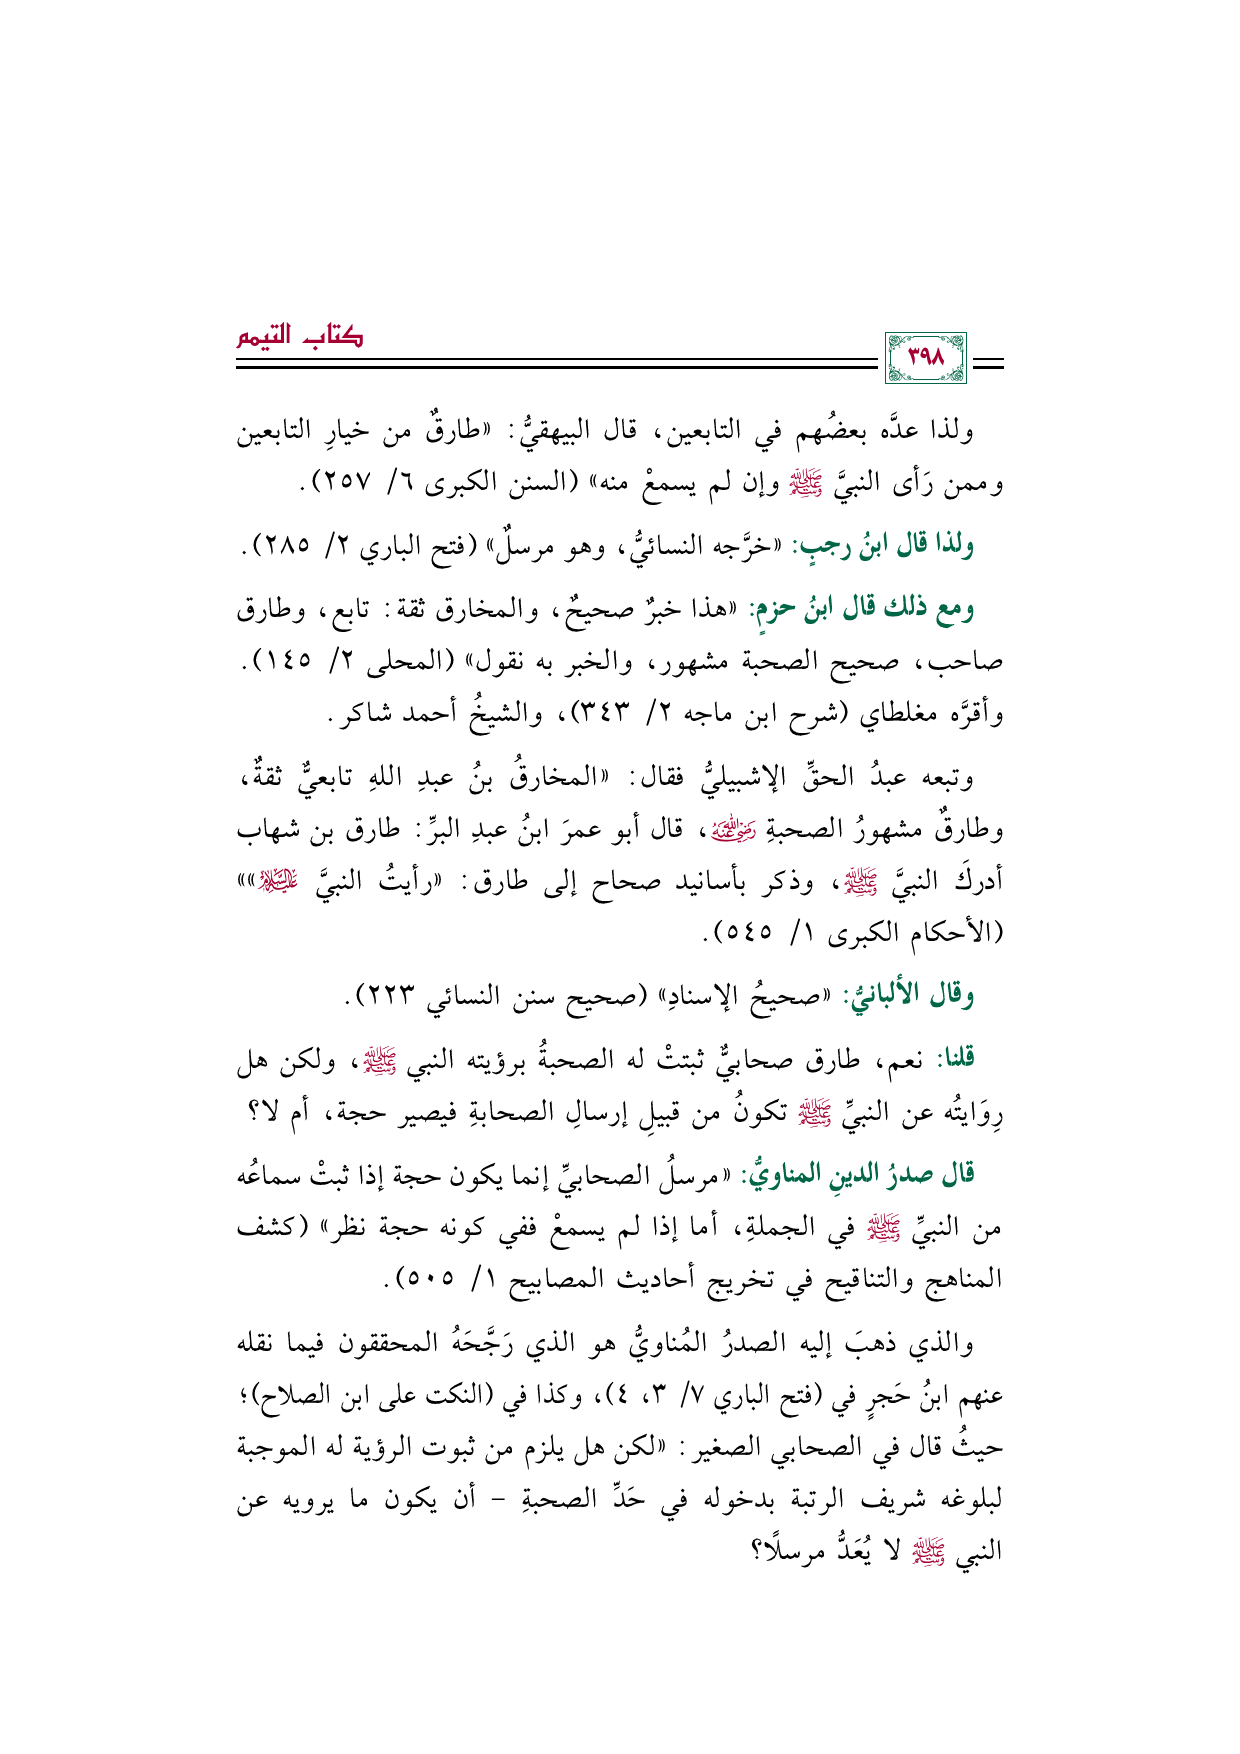 كتاب التيمم
٣٩٨
ولذا عدَّه بعضُهم في التابعين، قال البيهقيُّ: «طارقٌ من خيارِ التابعين
وممن رَأى النبيَّ ﷺ وإن لم يسمعْ منه» (السنن الكبرى ٦/ ٢٥٧).
ولذا قال ابنُ رجبٍ: «خرَّجه النسائيُّ، وهو مرسلٌ» (فتح الباري ٢/ ٢٨٥).
ومع ذلك قال ابنُ حزمٍ: «هذا خبرٌ صحيحٌ، والمخارق ثقة: تابع، وطارق
صاحب، صحيح الصحبة مشهور، والخبر به نقول» (المحلى ٢/ ١٤٥).
وأقرَّه مغلطاي (شرح ابن ماجه ٢/ ٣٤٣)، والشيخُ أحمد شاكر.
وتبعه عبدُ الحقِّ الإشبيليُّ فقال: «المخارقُ بنُ عبدِ اللهِ تابعيٌّ ثقةٌ،
وطارقٌ مشهورُ الصحبةِ رضي الله عنه، قال أبو عمرَ ابنُ عبدِ البرِّ: طارق بن شهاب
أدركَ النبيَّ ﷺ، وذكر بأسانيد صحاح إلى طارق: «رأيتُ النبيَّ عليه السلام»»
(الأحكام الكبرى ١/ ٥٤٥).
وقال الألبانيُّ: «صحيحُ الإسنادِ» (صحيح سنن النسائي ٢٢٣).
قلنا: نعم، طارق صحابيٌّ ثبتتْ له الصحبةُ برؤيته النبي ﷺ، ولكن هل
رِوَايتُه عن النبيِّ ﷺ تكونُ من قبيلِ إرسالِ الصحابةِ فيصير حجة، أم لا؟
قال صدرُ الدينِ المناويُّ: «مرسلُ الصحابيِّ إنما يكون حجة إذا ثبتْ سماعُه
من النبيِّ ﷺ في الجملةِ، أما إذا لم يسمعْ ففي كونه حجة نظر» (كشف
المناهج والتناقيح في تخريج أحاديث المصابيح ١/ ٥٠٥).
والذي ذهبَ إليه الصدرُ المُناويُّ هو الذي رَجَّحَهُ المحققون فيما نقله
عنهم ابنُ حَجرٍ في (فتح الباري ٧/ ٣، ٤)، وكذا في (النكت على ابن الصلاح)؛
حيثُ قال في الصحابي الصغير: «لكن هل يلزم من ثبوت الرؤية له الموجبة
لبلوغه شريف الرتبة بدخوله في حَدِّ الصحبةِ – أن يكون ما يرويه عن
النبي ﷺ لا يُعَدُّ مرسلًا؟